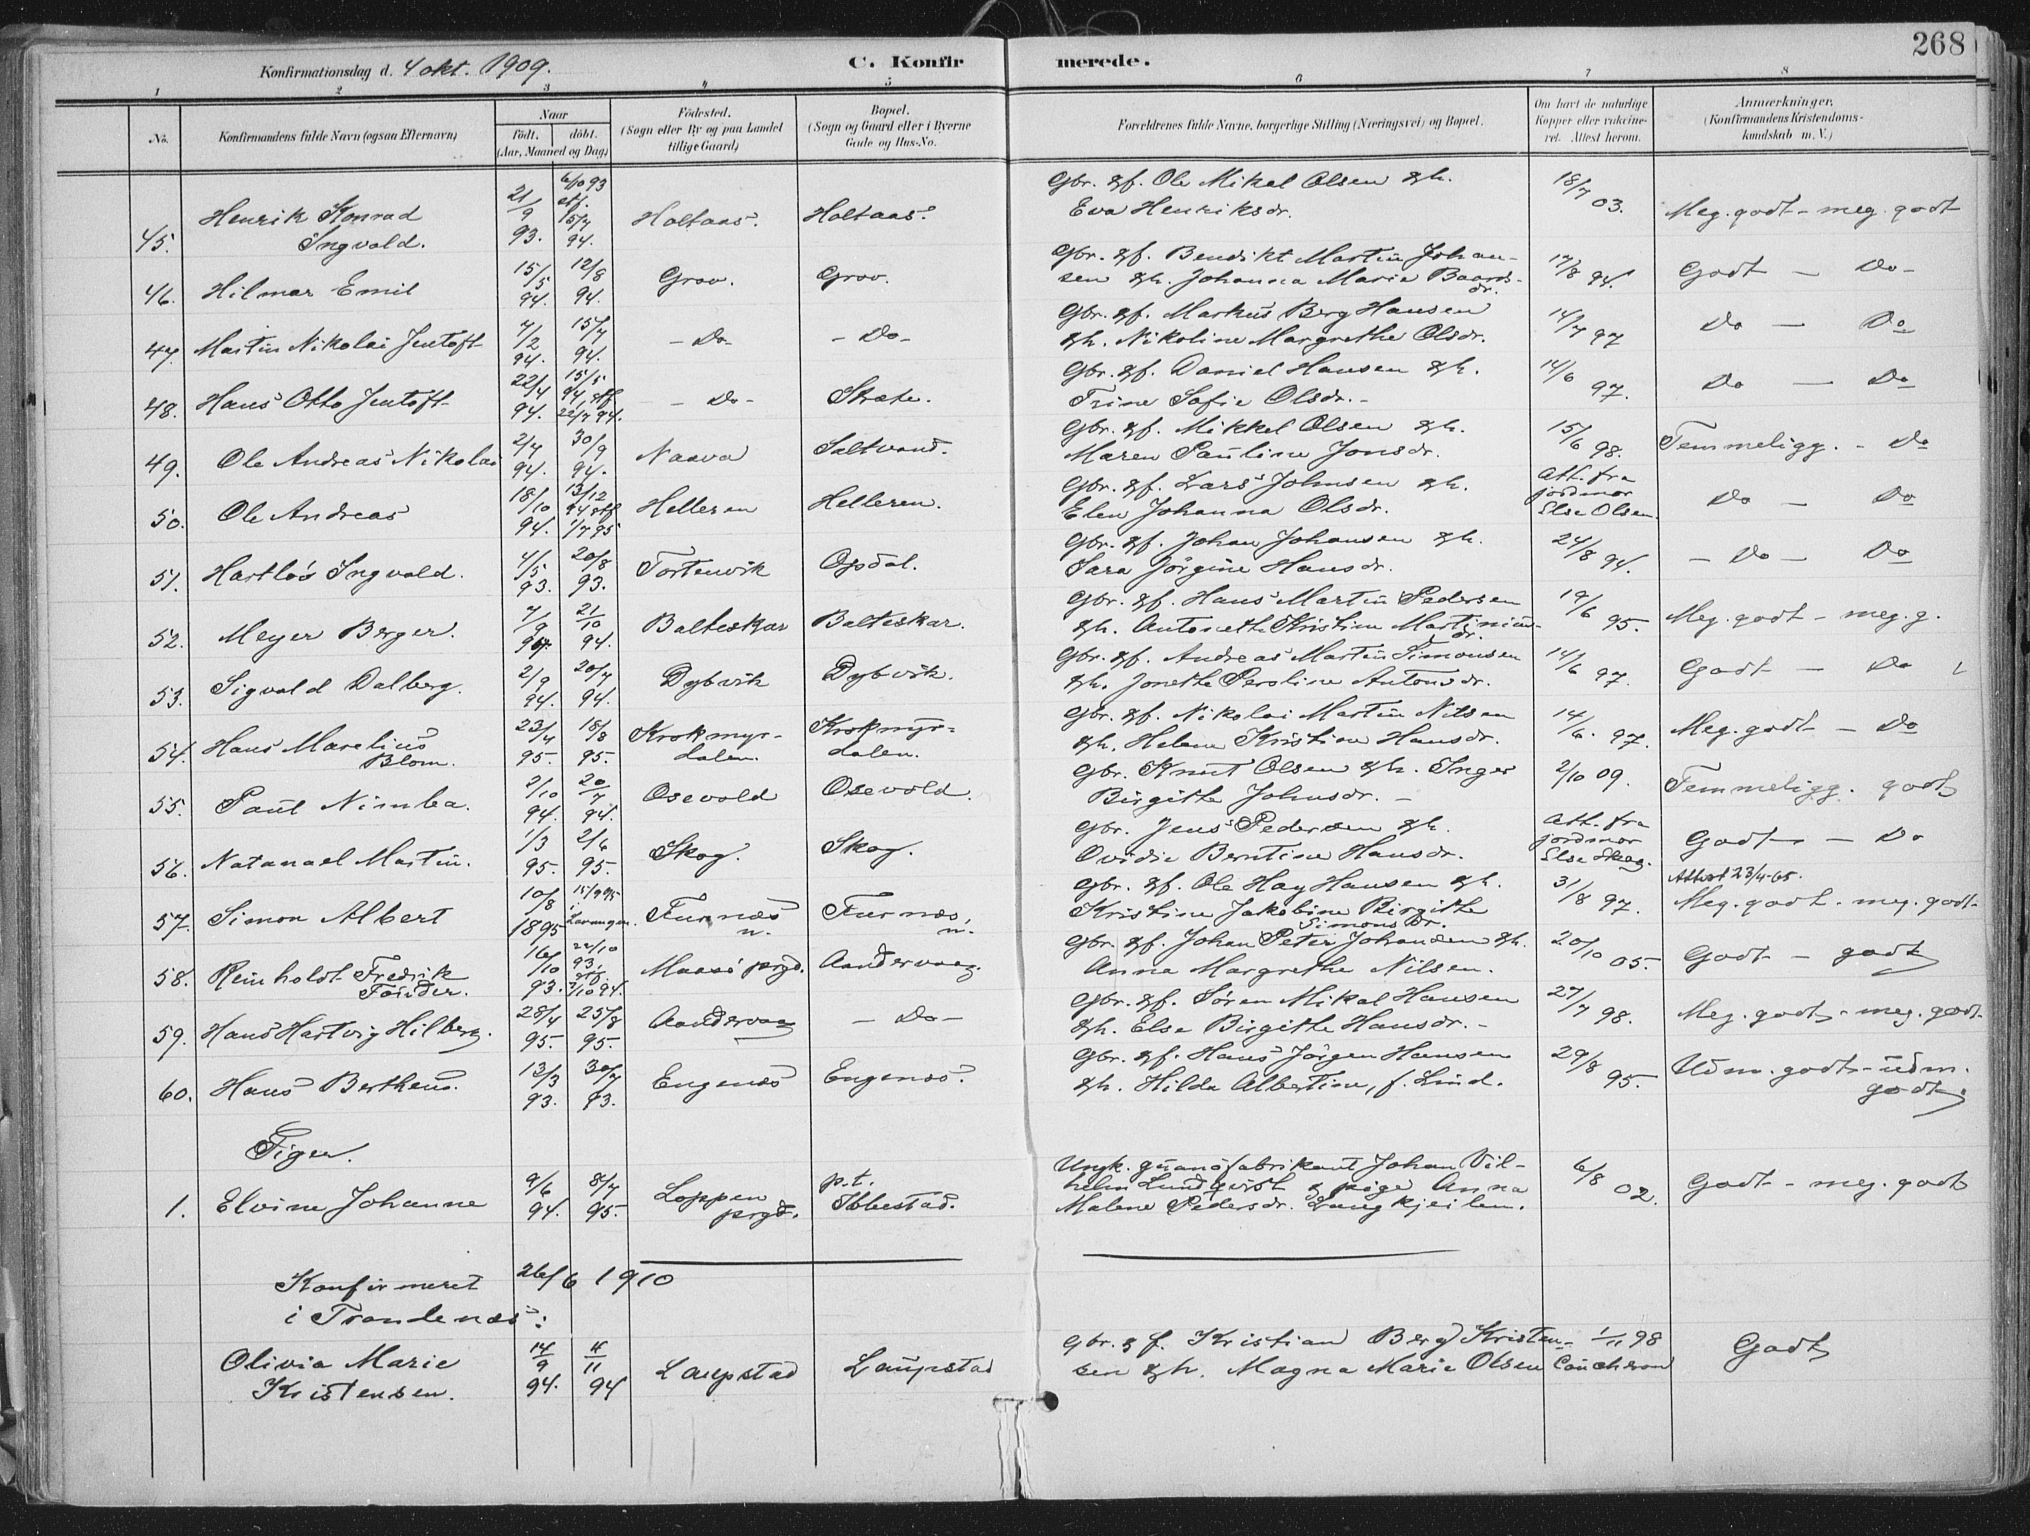 268
Konfirmationsdag d. 4 okt. 1909.
C. Konfirmerede.
1 2 3 4 5 6 7 8
No.
Konfirmandens fulde Navn (ogsaa Efternavn)
Naar
født. døbt.
(Aar, Maaned og Dag)
Fødested.
(Sogn eller By og paa Landet
tillige Gaard)
Bopæl.
(Sogn og Gaard eller i Byerne
Gade og Hus-No.
Forældrenes fulde Navne, borgerlige Stilling (Næringsvei) og Bopæl.
Om havt de naturlige
Kopper eller vakcine-
ret. Attest herom.
Anmærkninger.
(Konfirmandens Kristendoms-
kundskab m. V.)
45. Henrik Konrad Ingvald. 21/9 93. 6/10 93 stf. 15/7 94. Holtaas. Holtaas. Gbr. gf. Ole Mikal Olsen & h. Eva Henriksdr. 18/7 03. Meg. godt - meg. godt
46. Hilmar Emil 15/5 94. 12/8 94. Grov. Grov. Gbr. gf. Bendikt Martin Johansen & h. Johanna Marie Baardsdr. 17/8 94. Godt - Do -
47. Martin Nikolai Jentoft 7/2 94. 15/7 94. - Do - - Do - Gbr. gf. Markus Berg Hansen & h. Nikoline Margrethe Olsdr. 14/7 97 Do - Do
48. Hans Otto Jentoft 22/4 94. 15/5 94, stf 22/7 94. - Do - Skate. Gbr. gf. Daniel Hansen & h. Trine Sofie Olsdr. - 14/6 97. Do - Do
49. Ole Andreas Nikolai 2/7 94. 30/9 94. Naava Saltvand. Gbr. gf. Mikkel Olsen & h. Maren Pauline Jonsdr. 15/6 98. Temmeligg. - Do
50. Ole Andreas 18/10 94. 13/12 94 stf 1/7 95 Helleren Helleren. Gbr. gf. Lars Johnsen & h. Elen Johanna Olsdr. Att. fra jordmor Else Olsen. Do - Do
51. Hartløs Ingvald. 4/5 93. 20/8 93. Tortenvik Opdal. Gbr. gf. Johan Johansen & h. Sara Jørgine Hansdr. 24/8 94. - Do - Do
52. Meyer Berger. 7/9 94. 21/10 94. Balteskar Balteskar. Gbr. gf. Hans Martin Pedersen & h. Antonette Kristine Martiniusdr. 19/6 95. Meg. godt - meg. g.
53. Sigvald Dalberg. 2/9 94. 20/7 94. Dybvik Dybvik. Gbr. gf. Andreas Martin Simonsen & h. Jonette Peroline Antonsdr. 14/6 97. Godt - Do
54. Hans Marelius Blom. 23/4 95. 18/8 95. Krokmyrdalen. Krokmyrdalen. Gbr. gf. Nikolai Martin Nilsen & h. Helene Kristine Hansdr. 14/6. 97. Meg. godt - Do
55. Paul Nimba. 2/10 94. 20/7 94. Osevold Osevold. Gbr. Knut Olsen & h. Inger Birgitte Johnsdr. - 2/10 09. Temmeligg. godt
56. Natanael Martin. 1/3 95. 2/6 95. Skog. Skog. Gbr. Jens Pedersen & h. Ovidie Berntine Hansdr. Att. fra jordmor Else Skog. Godt - Do
Attest 23/4-65.
57. Simon Albert 10/8 1895 15/9 95 i Lavangen. Furnæs n. Furnæs, n. Gbr. gf. Ole Hay Hansen & h. Kristine Jakobine Birgitte Simonsdr. 31/8 97. Meg. godt - meg. godt.
58. Reinholdt Fredrik Fønder. 16/10 93. 22/10 93. stf 7/10 94. Maasø prgd. Aandervaag. Gbr. gf. Johan Peter Johansen & h. Anna Margrethe Nilsen. 20/10 05. Godt - godt
59. Hans Hartvig Hilberg. 28/4 95. 25/8 95. Aandervaag - Do - Gbr. gf. Søren Mikal Hansen & h. Else Birgitte Hansdr. - 27/7 98. Meg. godt - meg. godt.
60. Hans Bertheus. 13/3 93. 30/7 93. Engenæs Engenæs. Gbr. gf. Hans Jørgen Hansen & h. Hilda Albertine, f. Lind. 29/8 95. Udm. godt - udm. godt
Piger.
1. Elvine Johanne 9/6 94. 8/7 95. Loppen prgd. p.t. Ibbestad. Ungk. guanofabrikant Johan Vilhelm Lundqvist & pige Anna Malene Pedersdr. Langkjeilen. 6/8 02. Godt - meg. godt
Konfirmeret 26/6 1910
i Trondenæs:
Olivia Marie Kristensen. 14/9 94. 11/11 94 Laupstad Laupstad Gbr. gf. Kristian Berg Kristensen & h. Magna Marie Olsen 1/11 98 Couchron Godt